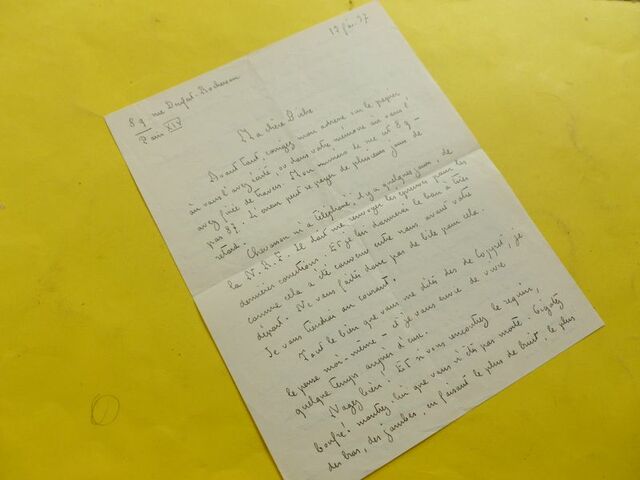 89 rue Denfert-Rochereau
Paris XIV
17 37
Ma chère
Avant tout, corrigez mon adresse sur le papier
où vous l'avez écrite, ou dans votre mémoire où vous l'
avez fixée de travers. Mon numéro de rue est 89 -
pas 87. Si on peut se payer de plusieurs jours de
retard.
Chevasson m'a téléphoné, il y a quelques jours, de
la N.R.F. Il doit me renvoyer les épreuves pour les
dernières corrections. Et je lui donnerai le bon à tirer
comme cela a été convenu entre nous avant votre
départ. Ne vous faites donc pas de bile pour cela.
Je vous tiendrai au courant.
Tout le bien que vous me dites des de Coppet, je
le pense moi-même - et je vous envie de vivre
quelque temps auprès d'eux.
Nagez bien! Et si vous rencontrez le requin,
montrez-lui que vous n'êtes pas morte. Gigotez
des bras, des jambes, en faisant le plus de bruit, le plus